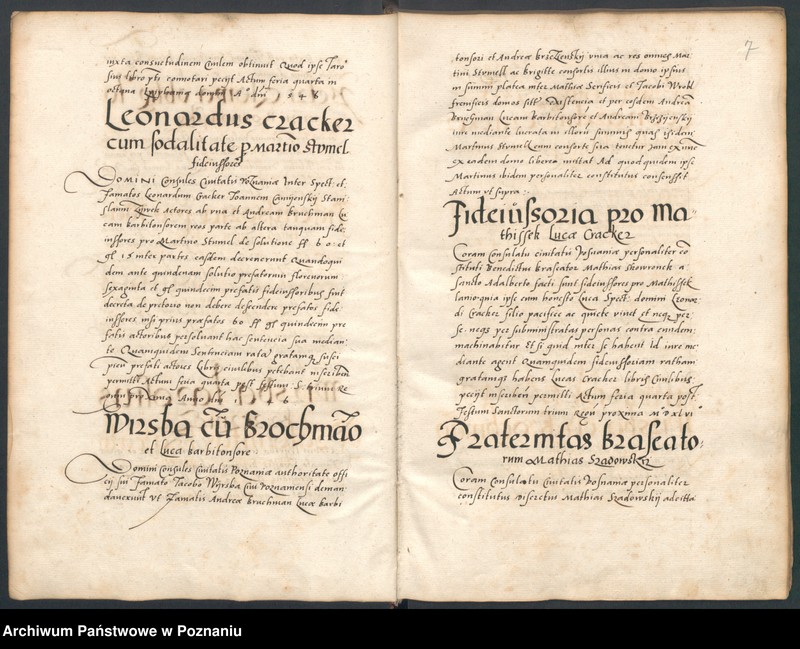 iuxta consuetudinem Civilem obtinuit Quod ipse Taro
sius libro pti connotari peciit Actum feria quarta in
octava
Leonardus cracker
cum sodalitate p Martino Stvmel
fideiussores
Domini Consules Civitatis Poznaniæ Inter Spect: et
famatos Leonardum Cracker Joannem Stani
slaum actores ab vna et Andream Bruchman Lu
cam barbitonsorem reos parte ab altera tanquam fide
iussores pro Martino Stumel de solutione ff 60 et
gl 15 inter partes easdem decreverunt Quandoqui
dem ante quindenam solutio prefatorum florenorum
sexaginta et gl quindecim prefatis fideiussoribus sint
decreta de pretorio non debere descendere prefatos fide
iussores nisi prius præfatos 60 ff gl quindecim pre
fatis actoribus persolvant hac sentencia sua median
te Quamquidem Sentenciam rata gratamq suscі
pien prefati actores Libris civilibus petebant inscribi
permitti Actum feria quarta post festum S Trium Re
gum proxima Anno
Wirsba cū Brochmāo
et Luca barbitonsore
Domini Consules Civitatis Poznaniæ authoritate offi
cij sui famato Jacobo Wyrsba Civi Poznaniensi deman
davervnt vt famatis Andreæ Bruchman Lucæ barbi
7
tonsori et Andreæ vnia ac res omnes Mar
tini Stvmell ac Brigitte consortis illius in domo ipsius
in summi platea inter Mathiæ et Jacobi Wrobl
domos sitæ Existencia et per eosdem Andrea
Bruchman Lucam barbitonsore et Andream
iure mediante lucrata in illorum summis quas eisdem
Martinus Stvmell cum consorte sua tenetur
ex eadem domo libere mittat Ad quod quidem ipse
Martinus ibidem personaliter constitutus consensit
Actum vt supra
Fideiussoria pro Ma-
thissek Lucæ Cracker
Coram Consulatu civitatis Posnaniæ personaliter co
stituti Benedictus braseator Mathias Skowronek a
Sancto Adalberto facti sunt fideiussores pro Mathissek
lamoquia ipse cum honesto Luca Spect: domini Leonar
di Cracker filio pacifice ac quiete vivet et neq per
se neq per subministratas personas contra eundem
machinabitur Et si quid inter se habent id iure me
diante agent Quamquidem fideiussoriam ratham
gratamq habens Lucas Cracker libris Civilibus
peciit inscriberi permitti Actum feria quarta post
festum Sanctorum trium Regū proxima M D XLVI
Fraternitas Braseato-
rum Mathias Szadowsky
Coram Consulatu Civitatis Posnaniæ personaliter
constitutus Discretus Mathias Szadowskij
Archiwum Państwowe w Poznaniu